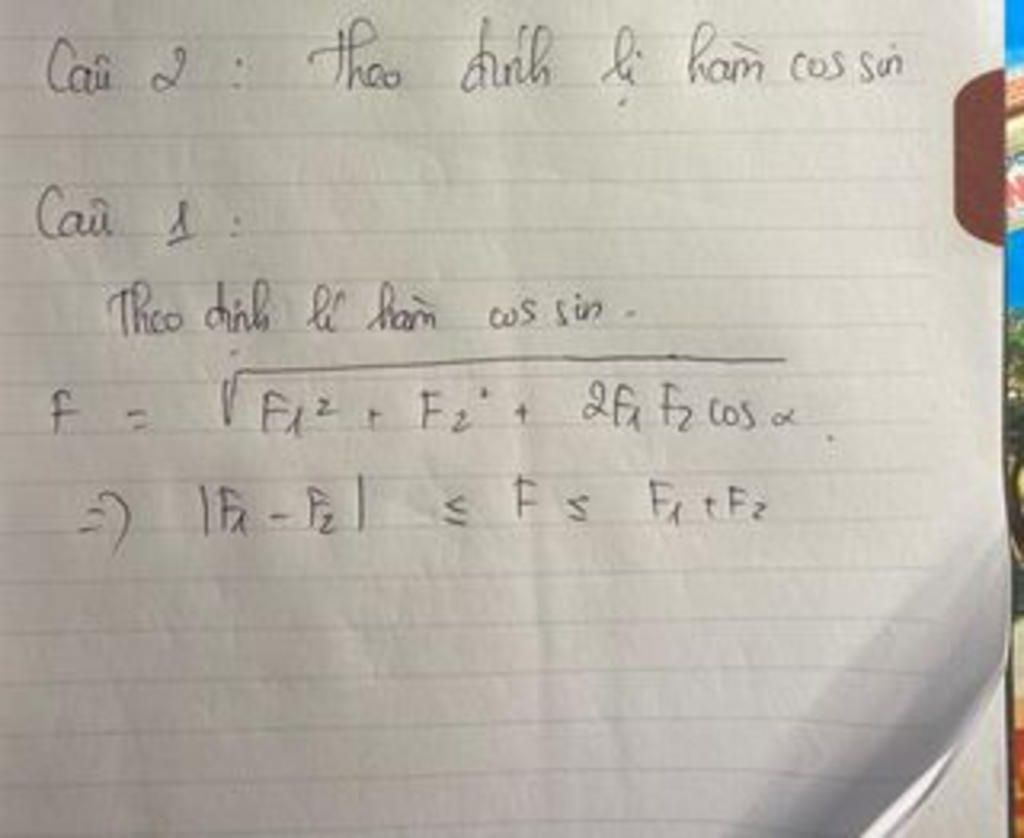 Câu 2 : Theo định lị hàm cos sin
Câu 1 :
Theo định lí hàm cos sin.
F = √F₁² + F₂² + 2F₁ F₂ cos α.
=> |F₁ - F₂| ≤ F ≤ F₁ + F₂